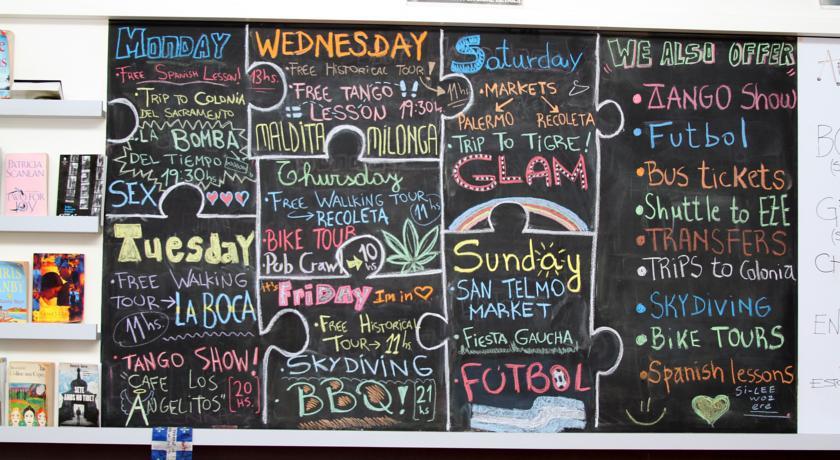 MONDAY
FREE SPANISH LESSON!
13hs.
TRIP TO COLONIA
DEL SACRAMENTO
LA BOMBA
DEL TIEMPO
19:30hs
SEX
TUESDAY
FREE WALKING
TOUR → LA BOCA
11hs.
TANGO SHOW!
"CAFE LOS
ANGELITOS"
20
hs
WEDNESDAY
FREE HISTORICAL TOUR
11hs
FREE TANGO
LESSON 19:30hs
MALDITA MILONGA
Thursday
FREE WALKING TOUR
→ RECOLETA
11hs
BIKE TOUR
Pub Crawl → 10
hs
it's FRIDAY I'm in
FREE HISTORICAL
TOUR → 11hs
SKYDIVING
BBQ!
21
hs
Saturday
MARKETS
PALERMO RECOLETA
TRIP TO TIGRE!
GLAM
Sunday
SAN TELMO
MARKET
FIESTA GAUCHA
FÚTBOL
WE ALSO OFFER
TANGO SHOW
Futbol
Bus tickets
Shuttle to EZE
TRANSFERS
TRIPS to Colonia
SKYDIVING
BIKE TOURS
Spanish lessons
Si-LEE
woz
ere
PATRICIA
SCANLAN
TWO FOR
JOY